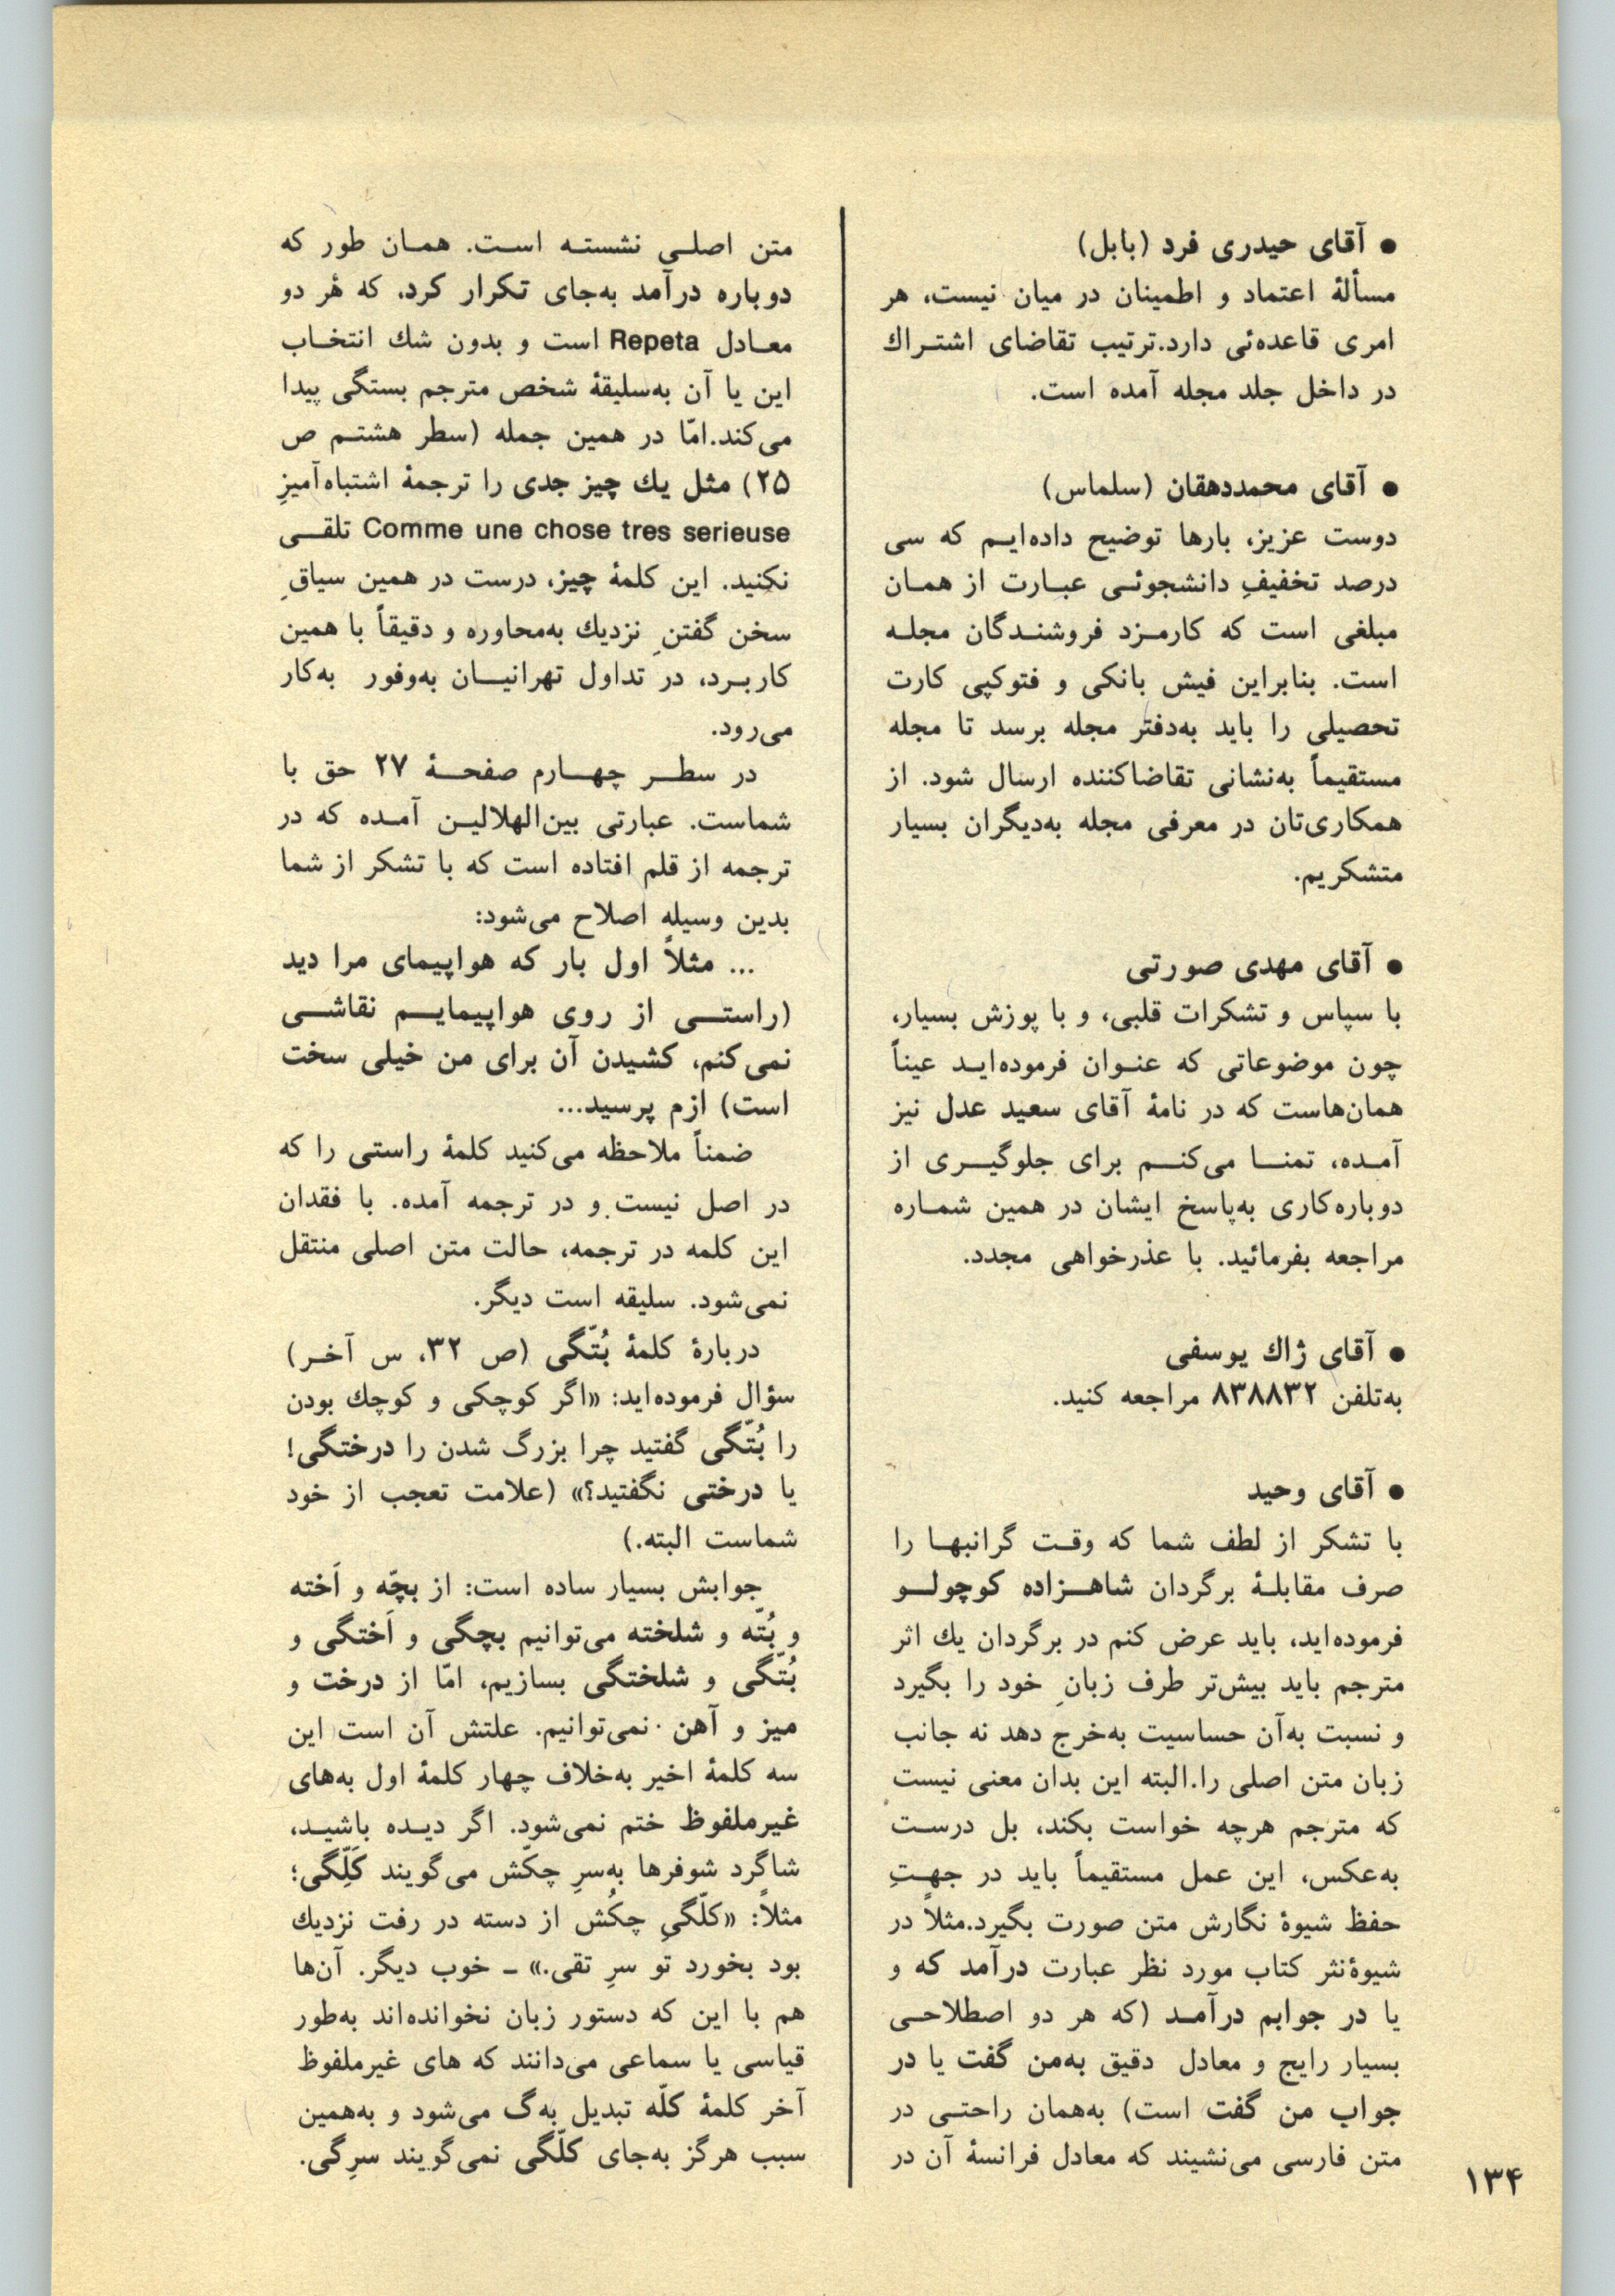 ● آقای حیدری فرد (بابل)
مسألهٔ اعتماد و اطمینان در میان نیست، هر
امری قاعده‌ئی دارد. ترتیب تقاضای اشتراك
در داخل جلد مجله آمده است.
● آقای محمددهقان (سلماس)
دوست عزیز، بارها توضیح داده‌ایم که سی
درصد تخفیفِ دانشجوئی عبارت از همان
مبلغی است که کارمزد فروشندگان مجله
است. بنابراین فیش بانکی و فتوکپی کارت
تحصیلی را باید به‌دفتر مجله برسد تا مجله
مستقیماً به‌نشانی تقاضاکننده ارسال شود. از
همکاری‌تان در معرفی مجله به‌دیگران بسیار
متشکریم.
● آقای مهدی صورتی
با سپاس و تشکرات قلبی، و با پوزش بسیار،
چون موضوعاتی که عنوان فرموده‌اید عیناً
همان‌هاست که در نامهٔ آقای سعید عدل نیز
آمده، تمنا می‌کنم برای جلوگیری از
دوباره‌کاری به‌پاسخ ایشان در همین شماره
مراجعه بفرمائید. با عذرخواهی مجدد.
● آقای ژاك یوسفی
به‌تلفن ۸۳۸۸۳۲ مراجعه کنید.
● آقای وحید
با تشکر از لطف شما که وقت گرانبها را
صرف مقابلهٔ برگردان شاهزاده کوچولو
فرموده‌اید، باید عرض کنم در برگردان یك اثر
مترجم باید بیش‌تر طرف زبانِ خود را بگیرد
و نسبت به‌آن حساسیت به‌خرج دهد نه جانب
زبان متن اصلی را. البته این بدان معنی نیست
که مترجم هرچه خواست بکند، بل درست
به‌عکس، این عمل مستقیماً باید در جهتِ
حفظ شیوهٔ نگارش متن صورت بگیرد. مثلاً در
شیوهٔ‌نثر کتاب مورد نظر عبارت درآمد که و
یا در جوابم درآمد (که هر دو اصطلاحی
بسیار رایج و معادل دقیق به‌من گفت یا در
جواب من گفت است) به‌همان راحتی در
متن فارسی می‌نشیند که معادل فرانسهٔ آن در
متن اصلی نشسته است. همان طور که
دوباره درآمد به‌جای تکرار کرد، که هر دو
معادل Repeta است و بدون شك انتخاب
این یا آن به‌سلیقهٔ شخص مترجم بستگی پیدا
می‌کند. امّا در همین جمله (سطر هشتم ص
۲۵) مثل یك چیز جدی را ترجمهٔ اشتباه‌آمیزِ
Comme une chose tres serieuse تلقی
نکنید. این کلمهٔ چیز، درست در همین سیاقِ
سخن گفتنِ نزدیك به‌محاوره و دقیقاً با همین
کاربرد، در تداول تهرانیان به‌وفور به‌کار
می‌رود.
در سطر چهارم صفحهٔ ۲۷ حق با
شماست. عبارتی بین‌الهلالین آمده که در
ترجمه از قلم افتاده است که با تشکر از شما
بدین وسیله اصلاح می‌شود:
... مثلاً اول بار که هواپیمای مرا دید
(راستی از روی هواپیمایم نقاشی
نمی‌کنم، کشیدن آن برای من خیلی سخت
است) ازم پرسید...
ضمناً ملاحظه می‌کنید کلمهٔ راستی را که
در اصل نیست و در ترجمه آمده. با فقدان
این کلمه در ترجمه، حالت متن اصلی منتقل
نمی‌شود. سلیقه است دیگر.
دربارهٔ کلمهٔ بُتّگی (ص ۳۲، س آخر)
سؤال فرموده‌اید: «اگر کوچکی و کوچك بودن
را بُتّگی گفتید چرا بزرگ شدن را درختگی!
یا درختی نگفتید؟» (علامت تعجب از خود
شماست البته.)
جوابش بسیار ساده است: از بچّه و اَخته
و بُتّه و شلخته می‌توانیم بچگی و اَختگی و
بُتّگی و شلختگی بسازیم، امّا از درخت و
میز و آهن نمی‌توانیم. علتش آن است این
سه کلمهٔ اخیر به‌خلاف چهار کلمهٔ اول به‌های
غیرملفوظ ختم نمی‌شود. اگر دیده باشید،
شاگرد شوفرها به‌سرِ چکّش می‌گویند کَلِّگی؛
مثلاً: «کلّگیِ چکُش از دسته در رفت نزدیك
بود بخورد تو سرِ تقی.» ـ خوب دیگر. آن‌ها
هم با این که دستور زبان نخوانده‌اند به‌طور
قیاسی یا سماعی می‌دانند که های غیرملفوظ
آخر کلمهٔ کلّه تبدیل به‌گ می‌شود و به‌همین
سبب هرگز به‌جای کلّگی نمی‌گویند سرِگی.
۱۳۴